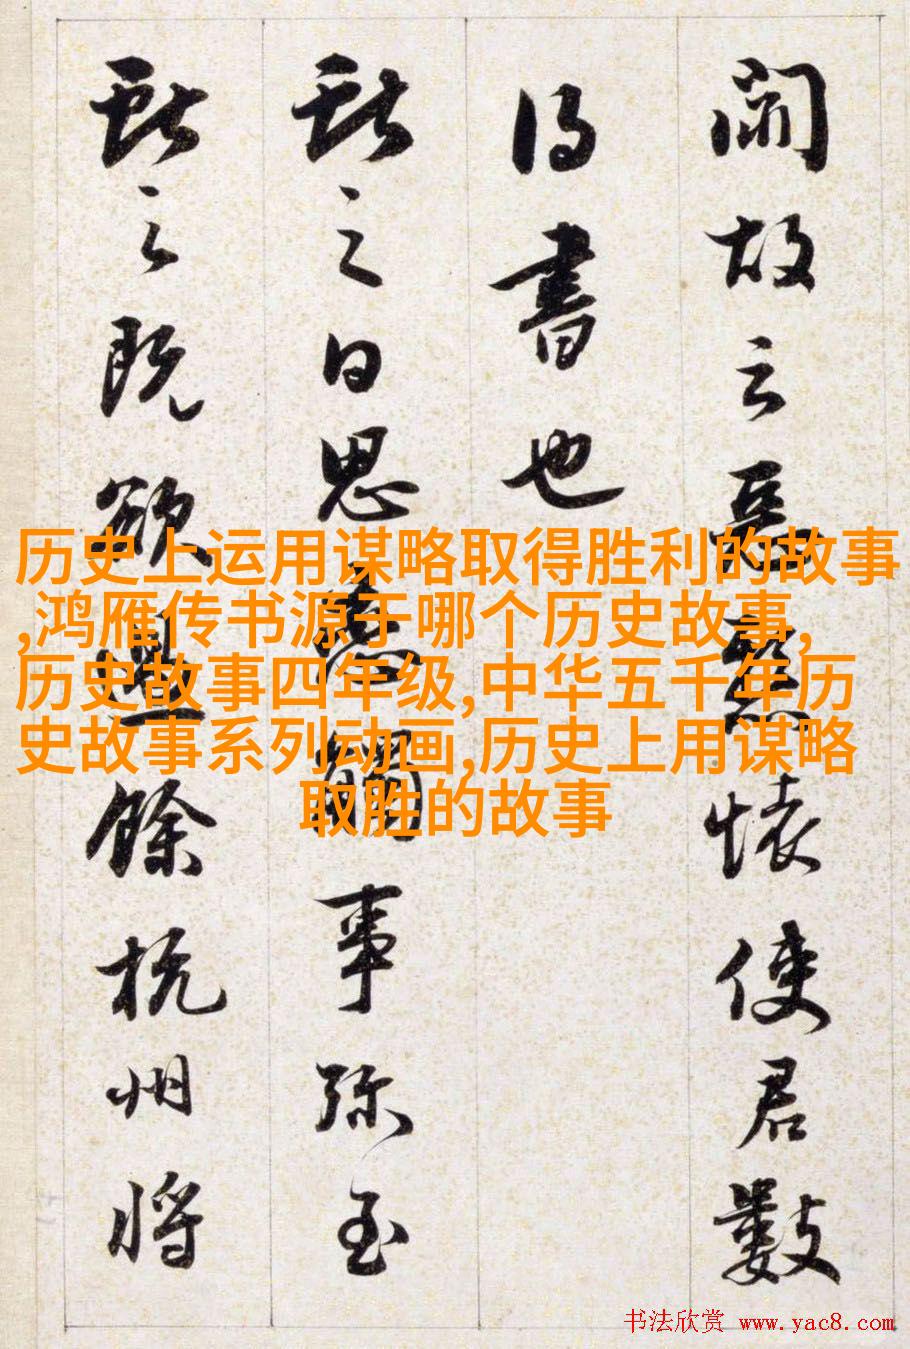 故云懷使君數
得書也
獻之思戀觸事弥至
獻之既欲過餘杭州将
历史上运用谋略取得胜利的故事
,鸿雁传书源于哪个历史故事,
历史故事四年级,中华五千年历
史故事系列动画,历史上用谋略
取胜的故事
书法欣赏 www.yac8.com